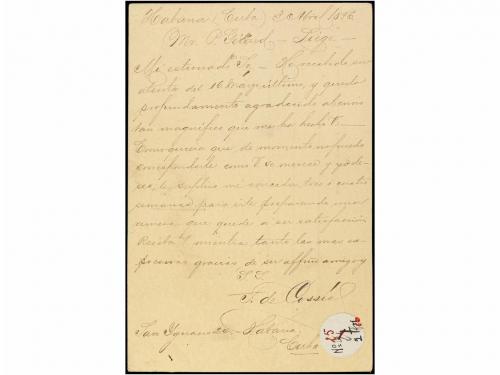 Habana (Cuba) 3 Abril 1896
Mr. P. Gérard - Liège
Mi estimado Sr, - He recibido su
atenta del 16 Marzo último, y quedo
profundamente agradecido al envio
tan magnífico que me ha hecho V.
Como quiera que de momento no puedo
corresponderle como V. se merece y yo de-
seo, le suplico me conceda tres ó cuatro
semanas para irle preparando una
remesa que quede a su satisfacción
Reciba V. mientras tanto las mas ex-
presivas gracias de su affmo amigo y
S. S.
F. de Cossío
San Ygnacio - Habana
Cuba